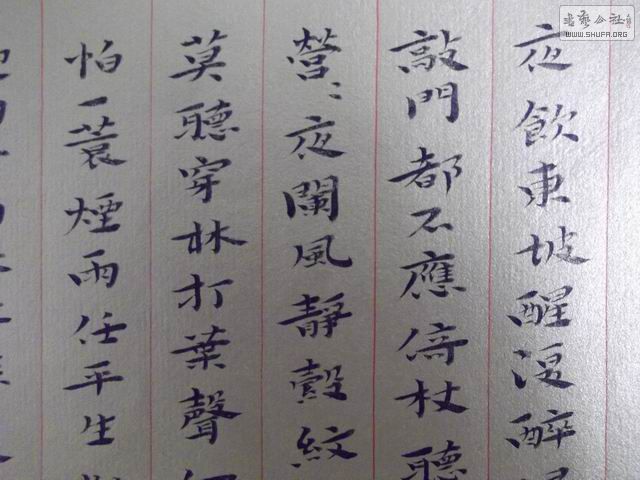 夜飲東坡醒復醉
敲門都不應倚杖聽
營〻夜闌風靜縠紋
莫聽穿林打葉聲
怕一蓑煙雨任平生
書藝公社
WWW.SHUFA.ORG